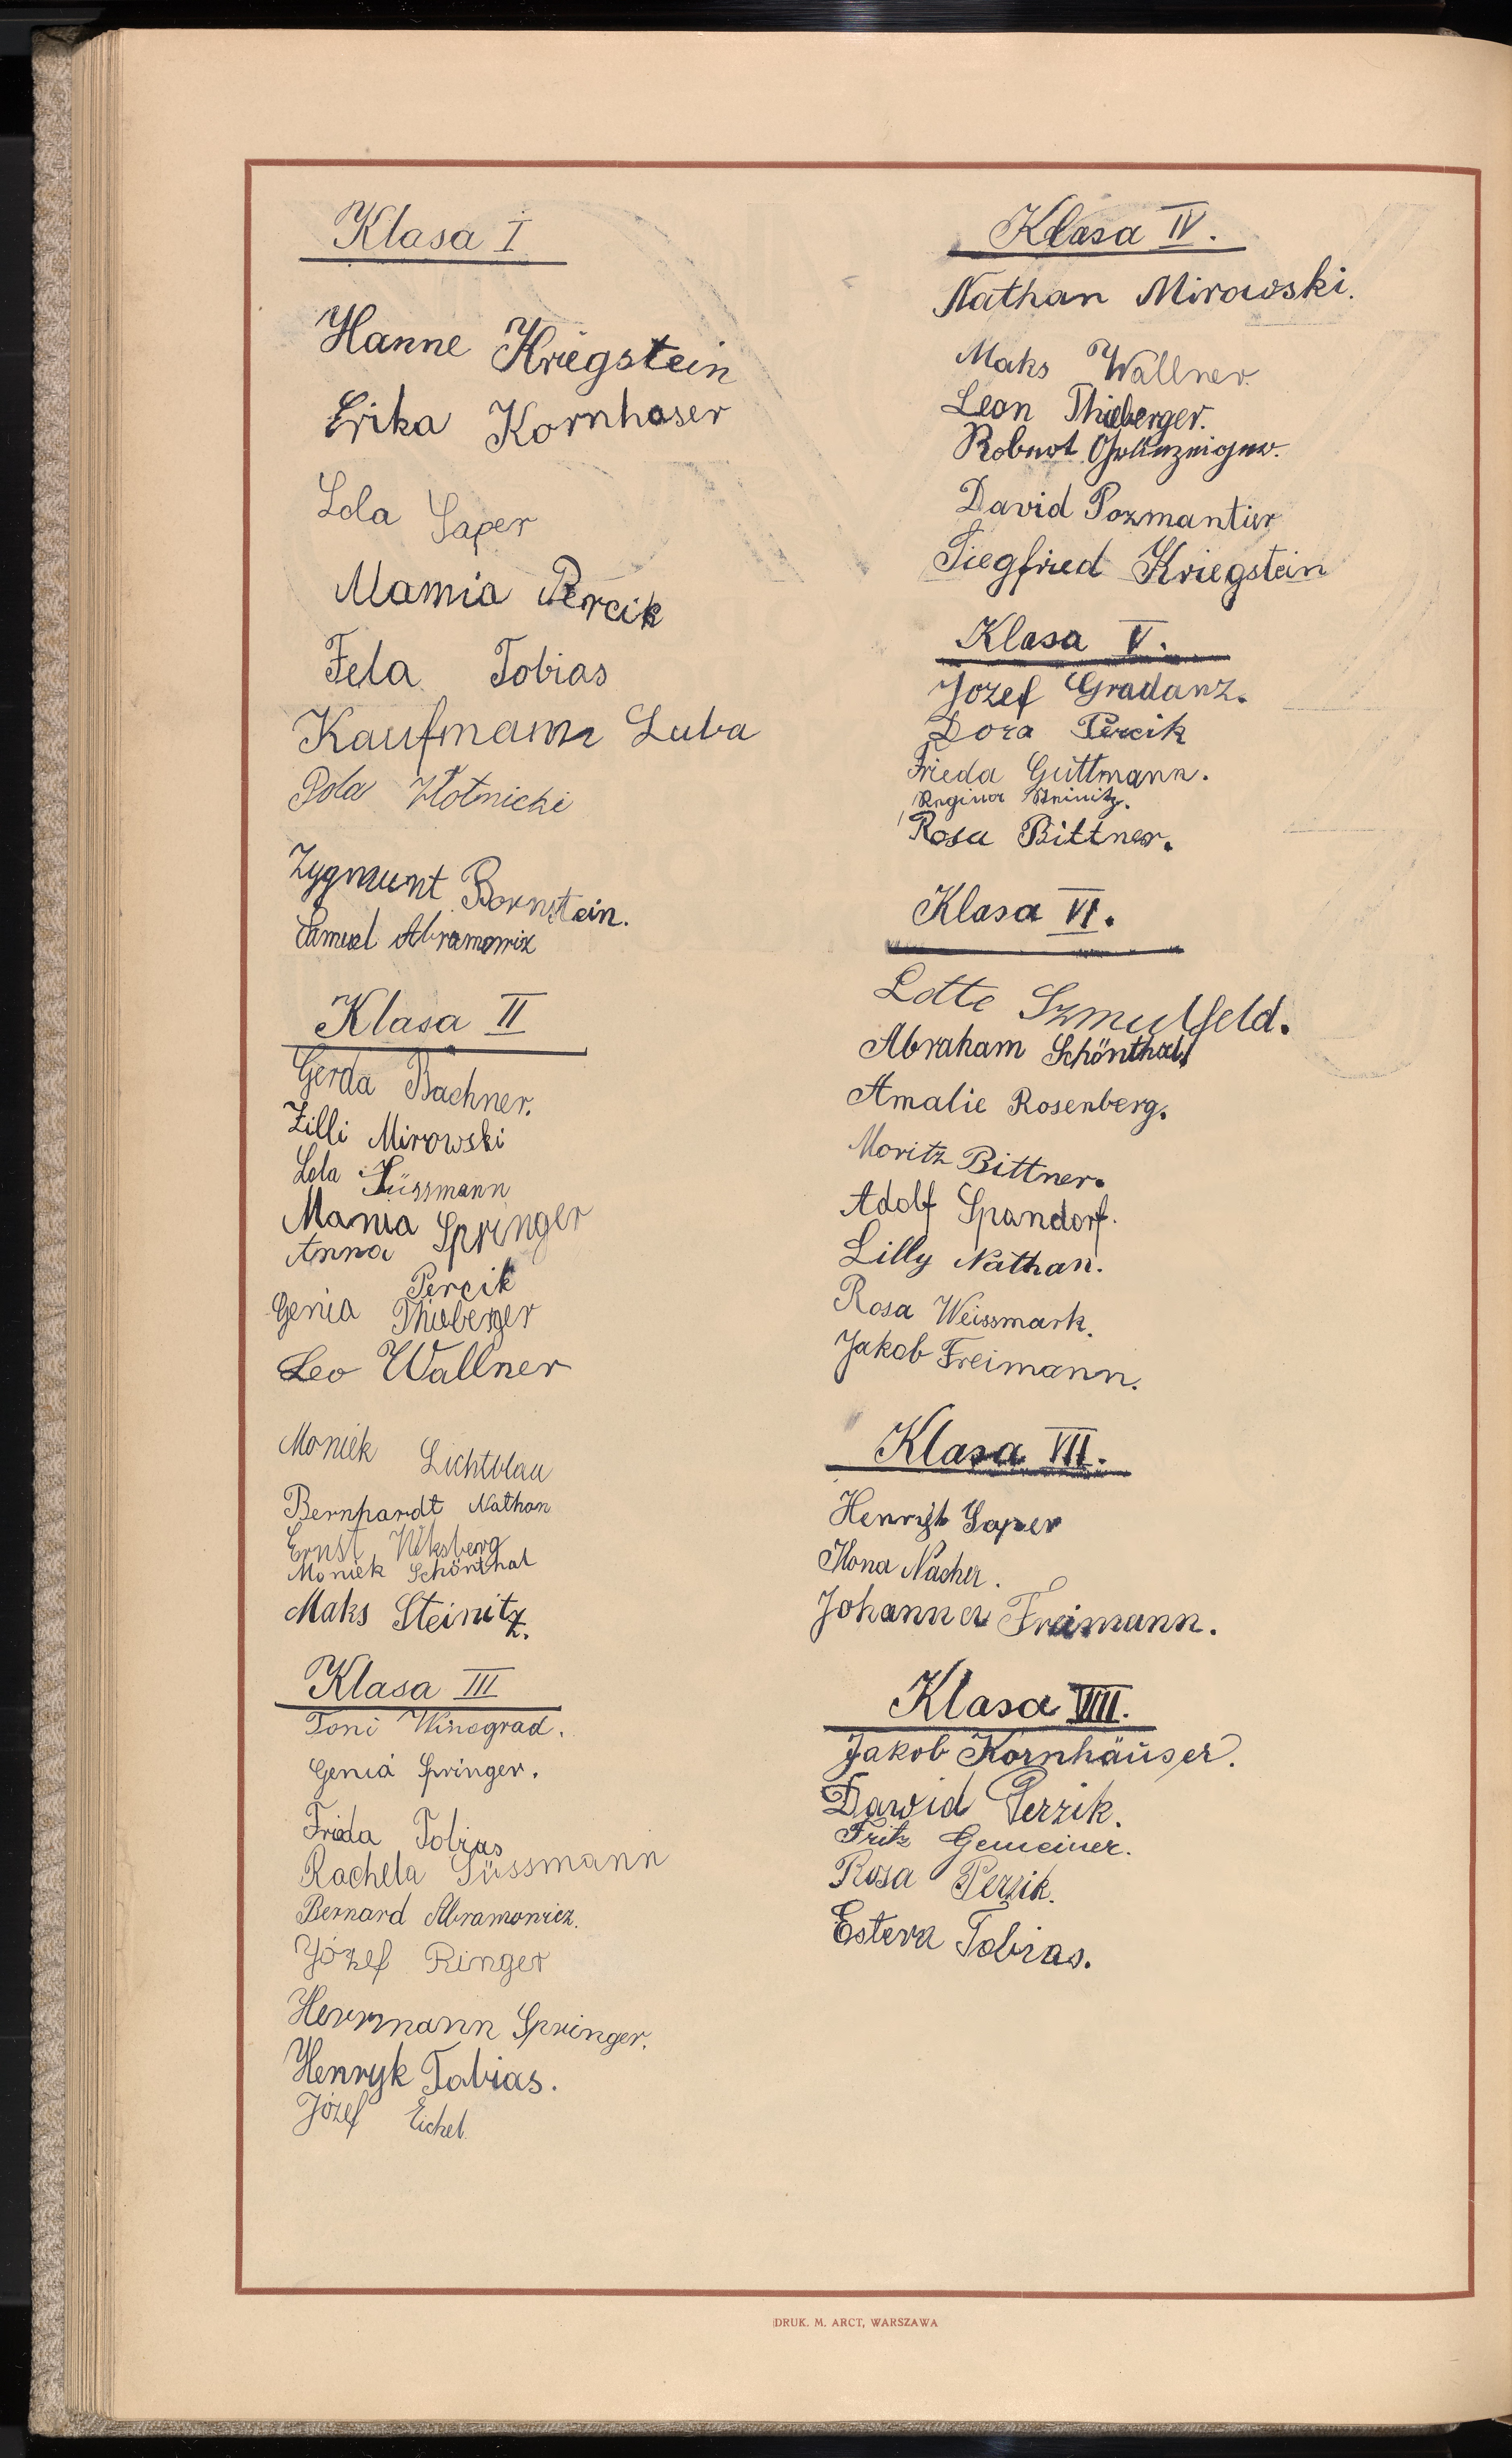 Klasa I
Hanne Kriegstein
Erika Kornhoser
Lola Saper
Mamia Percik
Fela Tobias
Kaufmann Luba
Pola Złotnicki
Zygmunt Bornstein.
Samuel Abramowicz
Klasa II
Gerda Bachner.
Zilli Mirowski
Lola Süssmann
Mania Springer
Anna Percik
Genia Thieberger
Leo Wallner
Moniek Lichtblau
Bernhardt Nathan
Ernst
Moniek Schönthal
Maks Steinitz.
Klasa III
Toni Winograd.
Genia Springer.
Frida Tobias
Rachela Süssmann
Bernard Abramowicz.
Józef Ringer
Herrmann Springer.
Henryk Tobias.
Józef Eichel.
Klasa IV.
Nathan Mirowski.
Maks Wallner.
Leon Thieberger.
David Pozmantier
Siegfried Kriegstein
Klasa V.
Jozef Gradanz.
Dora Percik
Frieda Guttmann.
Regina Steinitz.
Rosa Bittner.
Klasa VI.
Lotte Szmulfeld.
Abraham Schönthal
Amalie Rosenberg.
Moritz Bittner.
Adolf Spandorf.
Lilly Nathan.
Rosa Weissmark.
Jakob Freimann.
Klasa VII.
Henryk Saper
Ilona Nacher.
Johanna Freimann.
Klasa VIII.
Jakob Kornhäuser.
Dawid Perzik.
Fritz Gemeiner.
Rosa Perzik.
Estera Tobias.
DRUK. M. ARCT, WARSZAWA